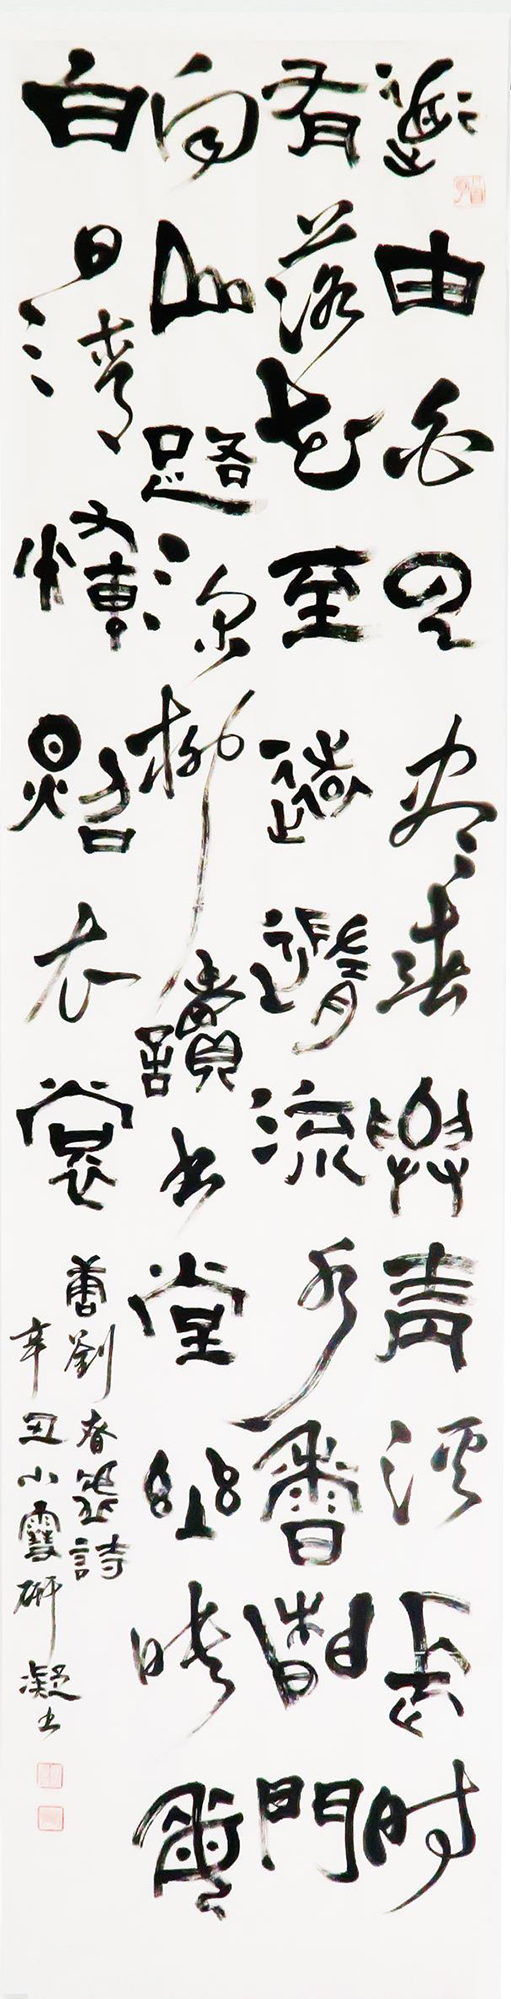 道由白云尽春與青溪長时
有落花至遠隨流水香閒門
向山路深柳讀书堂幽映每
白日清輝照衣裳
唐劉昚虛詩
辛丑小雪研凝书